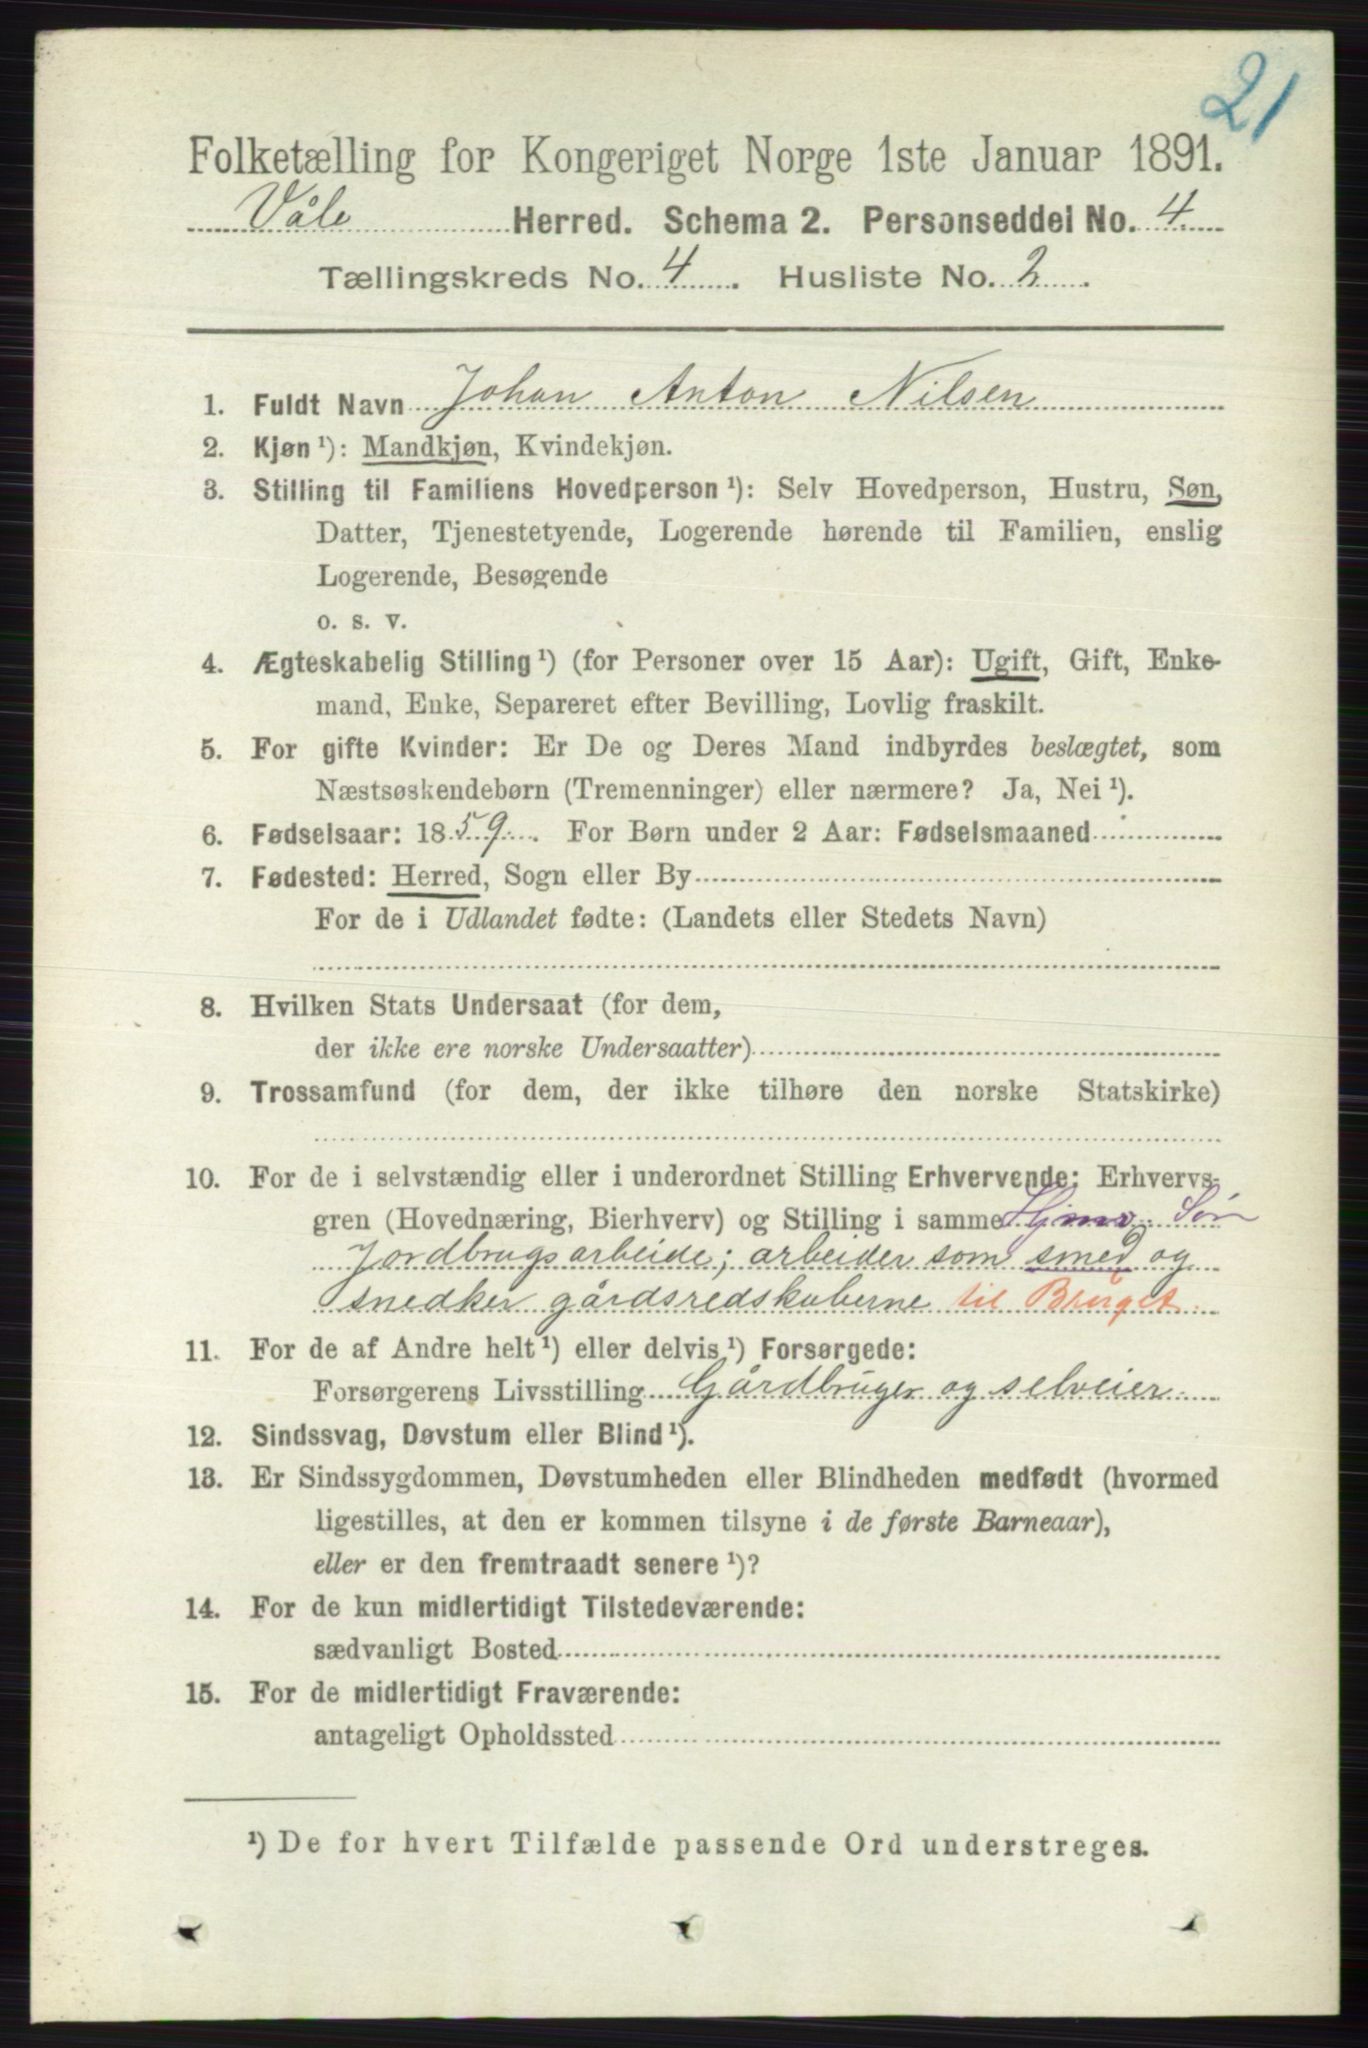 21
Folketælling for Kongeriget Norge 1ste Januar 1891.
Våle Herred. Schema 2. Personseddel No. 4.
Tællingskreds No. 4. Husliste No. 2.
1. Fuldt Navn Johan Anton Nilsen
2. Kjøn ¹): Mandkjøn, Kvindekjøn.
3. Stilling til Familiens Hovedperson ¹): Selv Hovedperson, Hustru, Søn,
Datter, Tjenestetyende, Logerende hørende til Familien, enslig
Logerende, Besøgende
o. s. v.
4. Ægteskabelig Stilling ¹) (for Personer over 15 Aar): Ugift, Gift, Enke-
mand, Enke, Separeret efter Bevilling, Lovlig fraskilt.
5. For gifte Kvinder: Er De og Deres Mand indbyrdes beslægtet, som
Næstsøskendebørn (Tremenninger) eller nærmere? Ja, Nei ¹).
6. Fødselsaar: 1859. For Børn under 2 Aar: Fødselsmaaned
7. Fødested: Herred, Sogn eller By
For de i Udlandet fødte: (Landets eller Stedets Navn)
8. Hvilken Stats Undersaat (for dem,
der ikke ere norske Undersaatter)
9. Trossamfund (for dem, der ikke tilhøre den norske Statskirke)
10. For de i selvstændig eller i underordnet Stilling Erhvervende: Erhvervs-
gren (Hovednæring, Bierhverv) og Stilling i samme Hjmv. Søn
Jordbrugsarbeide; arbeider som smed og
snedker gårdsredskaberne til Bruget.
11. For de af Andre helt ¹) eller delvis ¹) Forsørgede:
Forsørgerens Livsstilling Gårdbruger og selveier.
12. Sindssvag, Døvstum eller Blind ¹).
13. Er Sindssygdommen, Døvstumheden eller Blindheden medfødt (hvormed
ligestilles, at den er kommen tilsyne i de første Barneaar),
eller er den fremtraadt senere ¹)?
14. For de kun midlertidigt Tilstedeværende:
sædvanligt Bosted
15. For de midlertidigt Fraværende:
antageligt Opholdssted
¹) De for hvert Tilfælde passende Ord understreges.